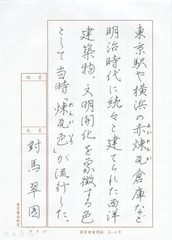 東京駅や横浜の赤煉瓦倉庫など
明治時代に続々と建てられた西洋
建築物。文明開化を象徴する色
として当時〝煉瓦色〟が流行した。
氏名
對馬翠園